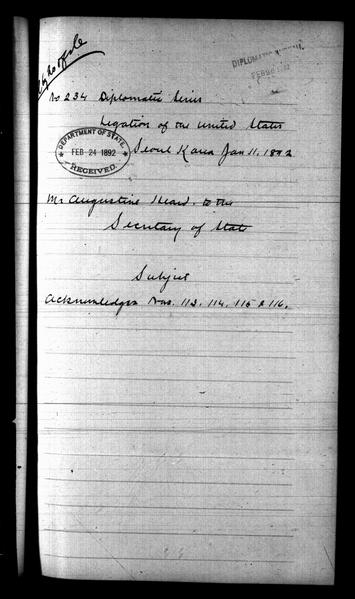 DIPLOMATIC
No 234 Diplomatic Series
Legation of the United States
DEPARTMENT OF STATE
FEB 24 1892
RECEIVED.
Seoul Korea Jan 11, 1892
Mr Augustine Heard, to the
Secretary of State
Subject
Acknowledges Nos. 113, 114, 115 & 116.